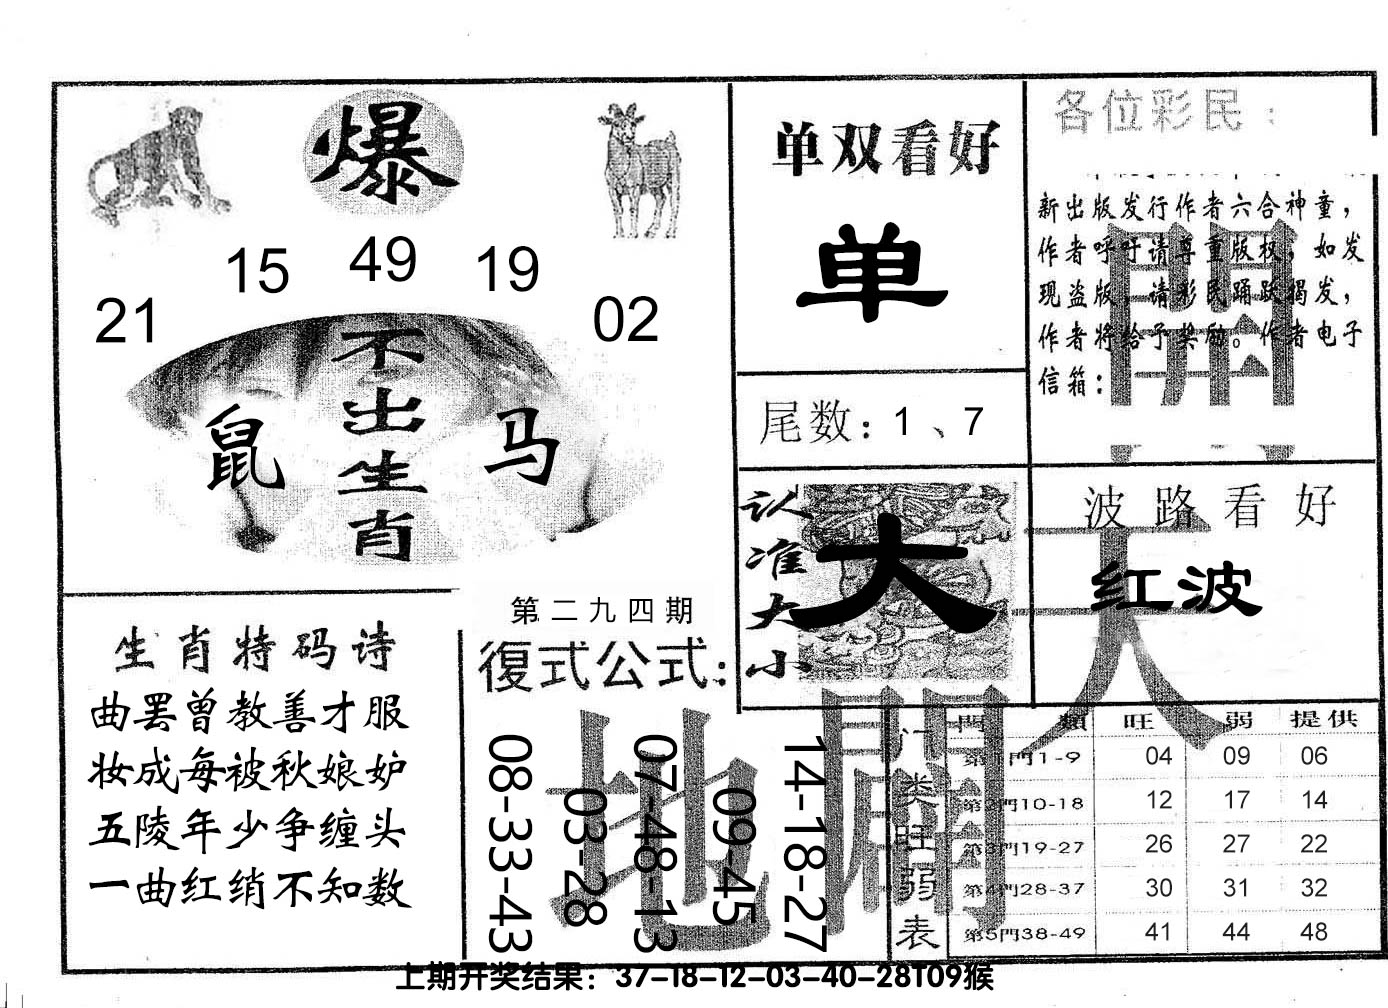 爆
15 49 19
21 02
不出生肖
鼠 马
生肖特码诗
曲罢曾教善才服
妆成每被秋娘妒
五陵年少争缠头
一曲红绡不知数
第二九四期
復式公式:
08-33-43
03-28
07-48-13
09-45
14-18-27
单双看好
单
尾数: 1、7
认准大小
大
各位彩民:
新出版发行作者六合神童，
作者呼吁请尊重版权，如发
现盗版，请彩民踊跃揭发，
作者将给予奖励。作者电子
信箱:
波路看好
红波
天
地
門類 旺 弱 提供
门类旺弱表
第1門1-9 04 09 06
第2門10-18 12 17 14
第3門19-27 26 27 22
第4門28-37 30 31 32
第5門38-49 41 44 48
上期开奖结果: 37-18-12-03-40-28T09猴